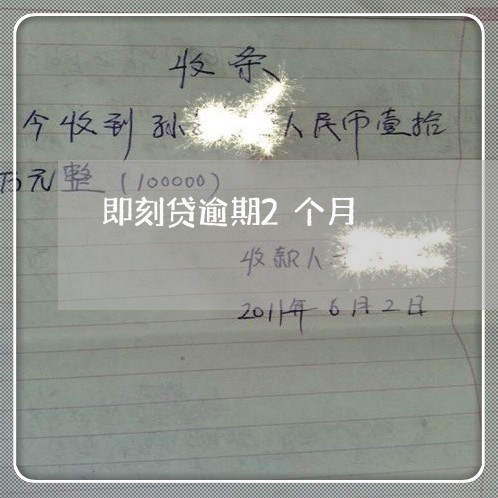 收条
今收到孙 人民币壹拾
万元整(100000)
即刻贷逾期2个月
收款人
2011年6月2日